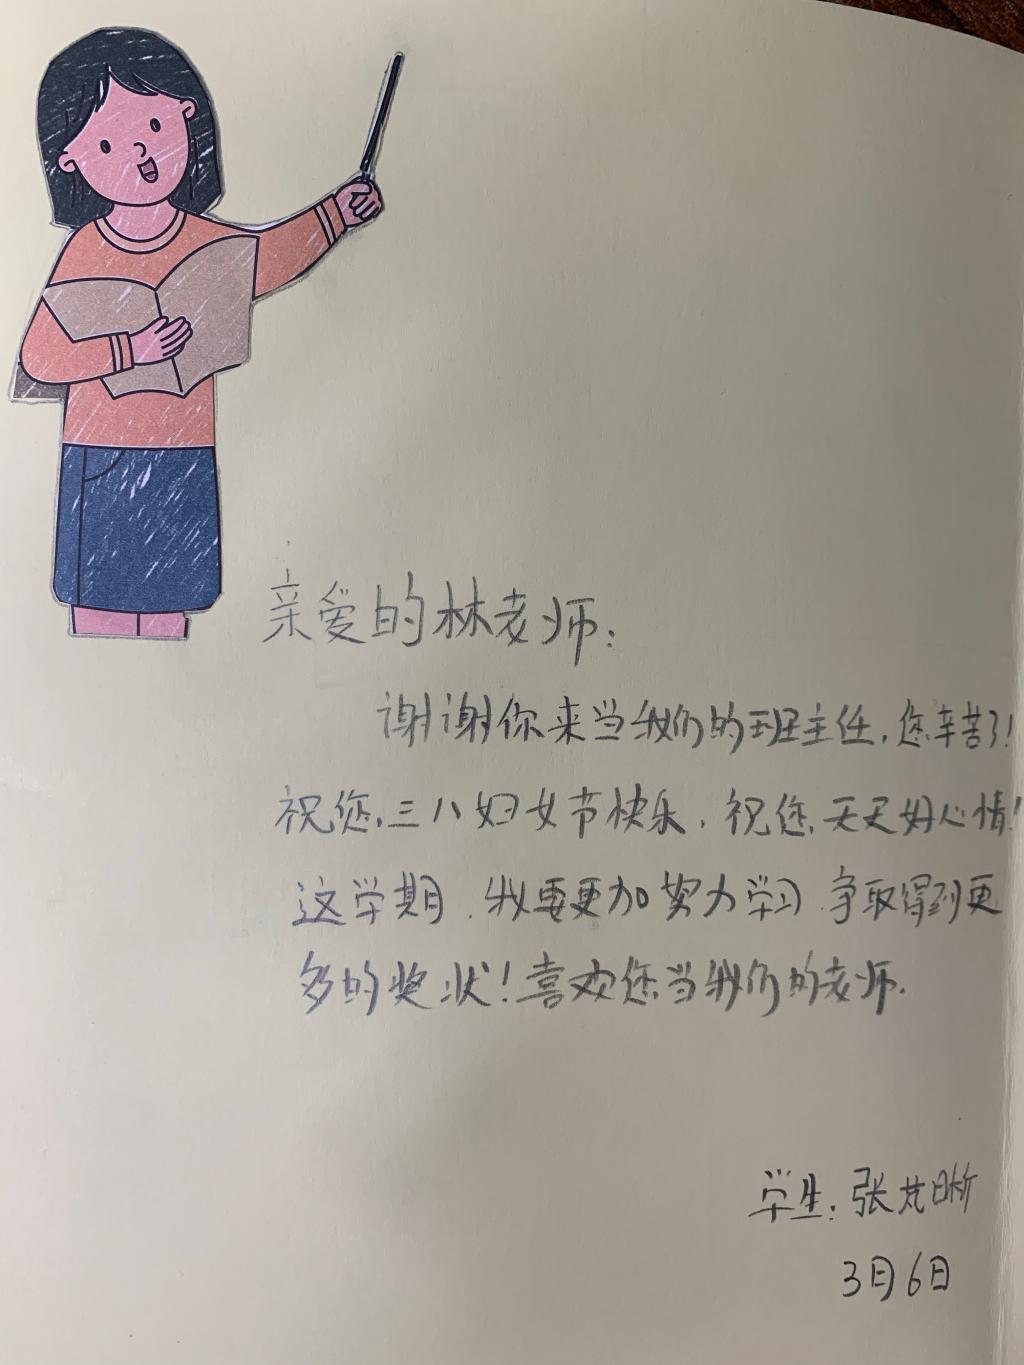 亲爱的林老师：
谢谢你来当我们的班主任，您辛苦了！
祝您，三八妇女节快乐，祝您，天天好心情！
这学期，我要更加努力学习，争取得到更
多的奖状！喜欢您当我们的老师.
学生：张芃晰
3月6日